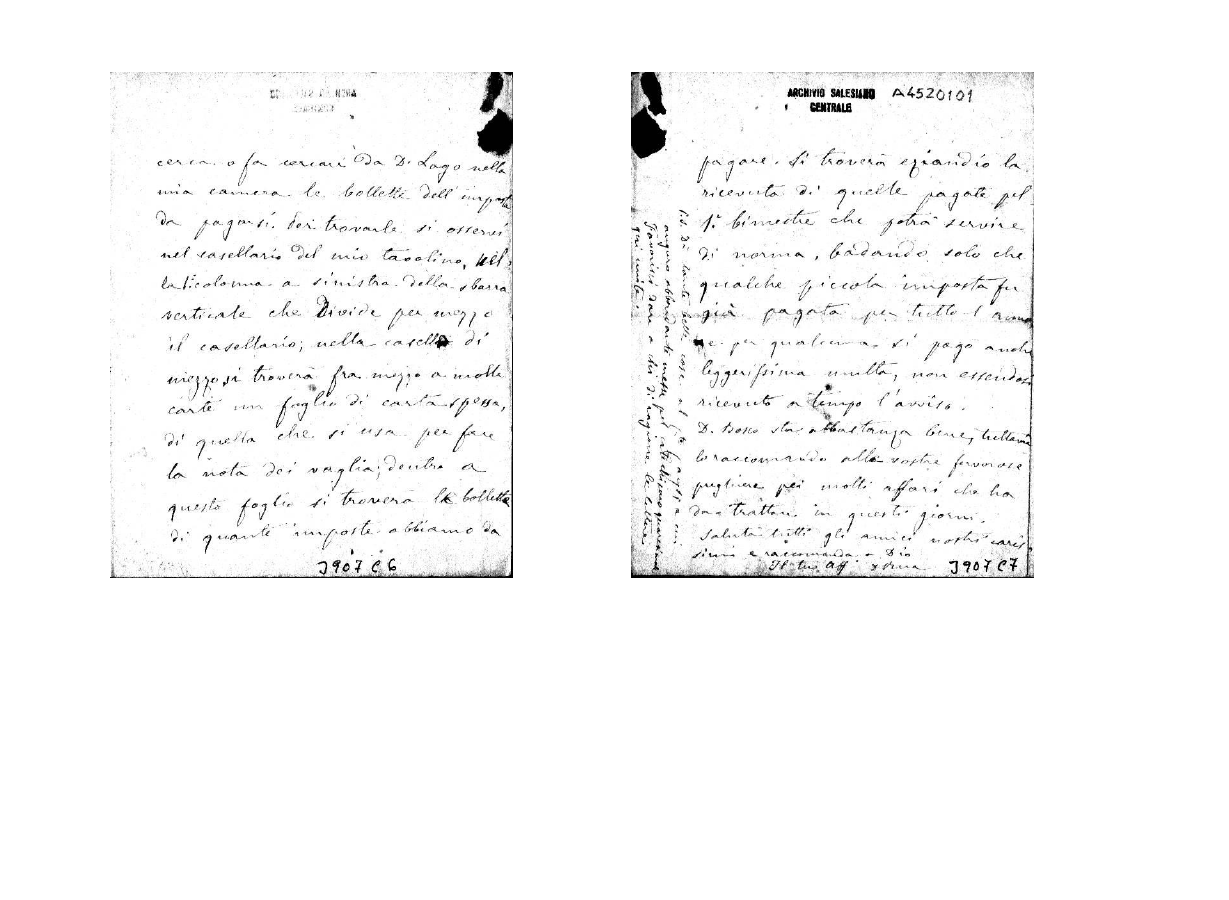 cerca o fa cercare da D. Lago nella
mia camera le bollette dell'imposta
da pagarsi. Per trovarle si osservi
nel casellario del mio tavolino, nel
la 1ª colonna a sinistra della sbarra
verticale che divide per mezzo
il casellario; nella casella di
mezzo, si troverà fra mezzo a molte
carte un foglio di carta spessa,
di quella che si usa per fare
la nota dei vaglia; dentro a
questo foglio si troverà le bollette
di quante imposte abbiamo da
J907C6
ARCHIVIO SALESIANO
CENTRALE
A4520101
pagare. Si troverà eziandio la
ricevuta di quelle pagate pel
1º bimestre che potrà servire
di norma, badando solo che
qualche piccola imposta fu
già pagata per tutto l'anno
e per qualcuna si pagò anche
leggerissima multa, non essendosi
ricevuto a tempo l'avviso.
D. Bosco sta abbastanza bene, tuttavia
lo raccomando alle vostre fervorose
preghiere pei molti affari che ha
da trattare in questi giorni.
Saluta tutti gli amici nostri caris
simi e raccomanda a Dio
Il tuo Aff. Rua
J907C7
P.S. Dì tante belle cose al
auguro abbondante messe pel catechismo quaresimale
Favorisci dare a chi di ragione le lettere
qui unite.